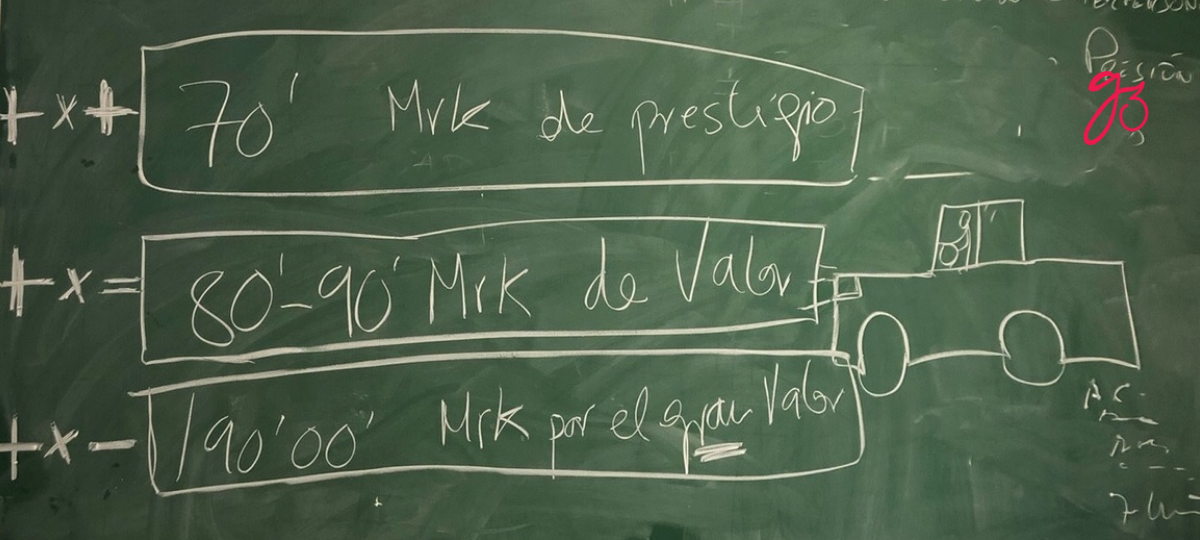 PRESIÓN
g3
+ x + 70' Mrk de prestigio
+ x = 80'-90' Mrk de Valor
+ x - 90'00' Mrk por el gran Valor